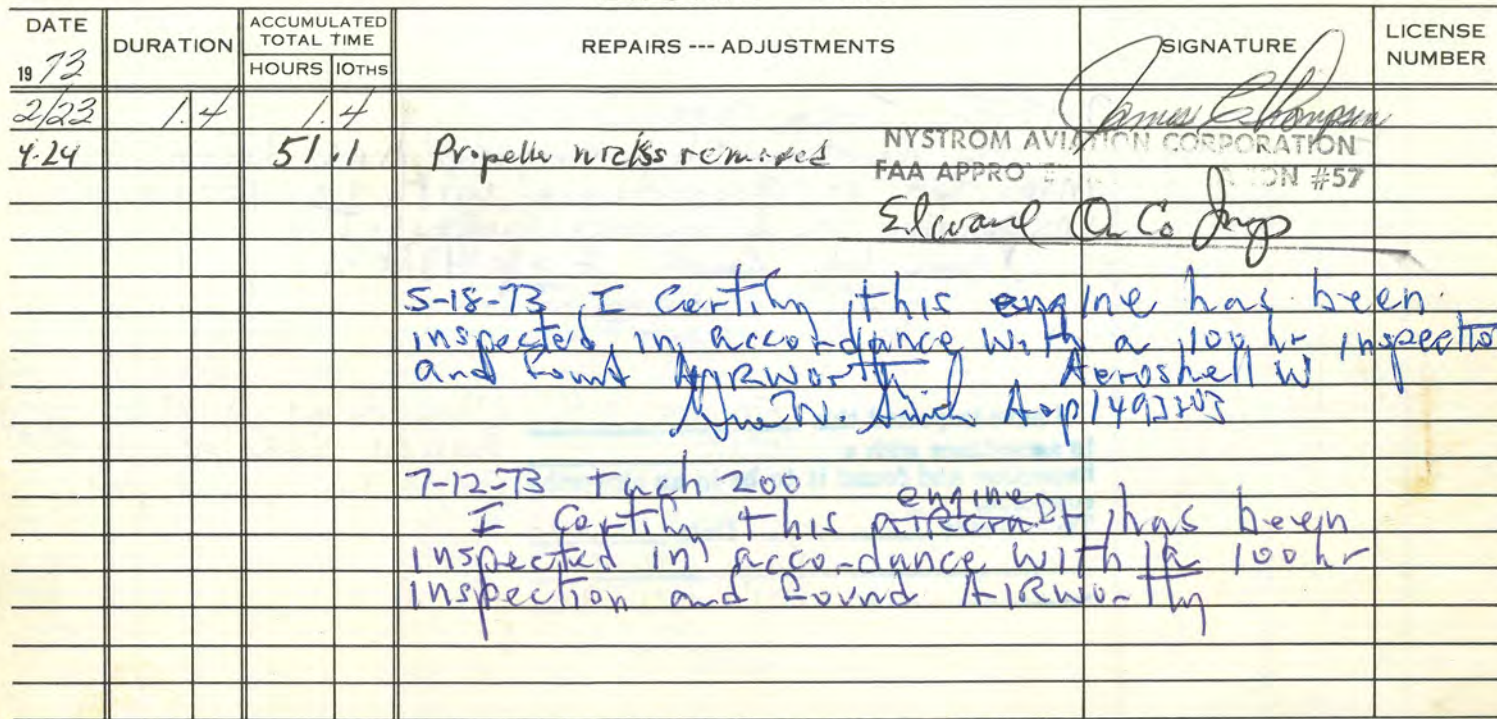 DATE DURATION ACCUMULATED TOTAL TIME REPAIRS --- ADJUSTMENTS SIGNATURE LICENSE NUMBER
1973 HOURS 10THS
2/23 1.4 1.4 James C Thompson
4-24 51.1 Propelle nicks removed
NYSTROM AVIATION CORPORATION
FAA APPRO ON #57
Edward
5-18-73 I Certify this engine has been
inspected in accordance with a 100 hr inspectio
and found AIRworthy Aeroshell W
W. A+P
7-12-73 tach 200
engine
I Certify this aircraft has been
inspected in accordance with a 100 hr
inspection and found AIRworthy